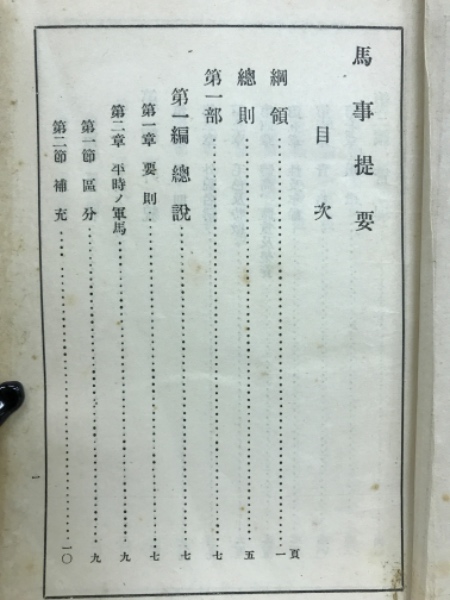 馬事提要
目次
頁
綱領…………一
總則…………五
第一部…………七
第一編 總說…………七
第一章 要則…………七
第二章 平時ノ軍馬…………九
第一節 區分…………九
第二節 補充…………一〇
一